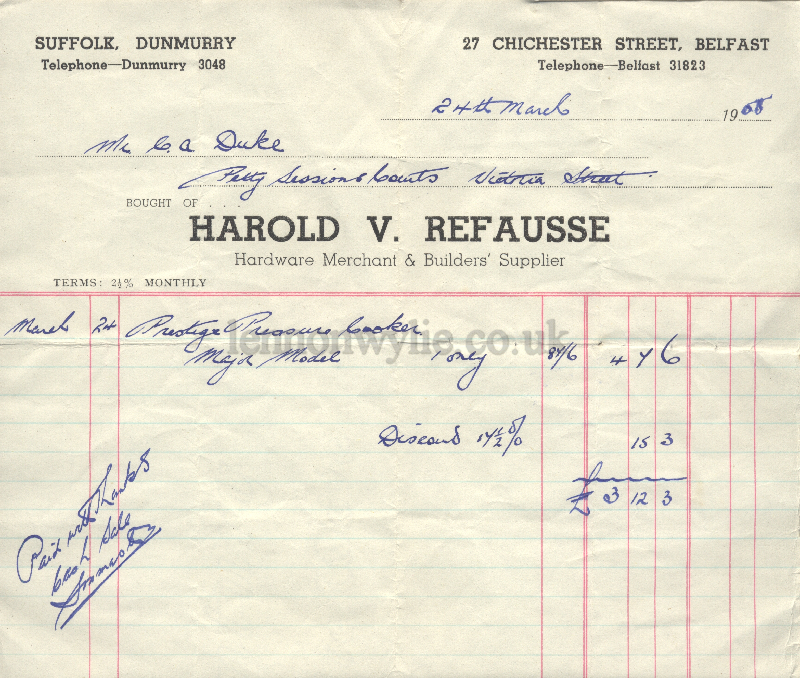 SUFFOLK, DUNMURRY
Telephone—Dunmurry 3048
27 CHICHESTER STREET, BELFAST
Telephone—Belfast 31823
24th March 1958
Mr C. A Duke
Petty Sessions Courts Victoria Street
BOUGHT OF . . .
HAROLD V. REFAUSSE
Hardware Merchant & Builders' Supplier
TERMS: 2½% MONTHLY
lennonwylie.co.uk
March 24 Prestige Pressure Cooker
Major Model 1 only 87/6 4 7 6
Discount 17½% 15 3
£ 3 12 3
Paid with thanks
Cash Sale